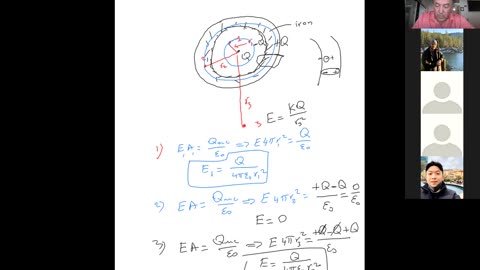 iron
-Q +Q
Q
E = KQ/r²
1) E₁A₁ = Qenc/ε₀ ⇒ E 4πr₁² = Q/ε₀
E₁ = Q/4πε₀r₁²
2) EA = Qenc/ε₀ ⇒ E 4πr₂² = +Q-Q/ε₀ = 0/ε₀
E = 0
3) EA = Qenc/ε₀ ⇒ E 4πr₃² = +Q-Q+Q/ε₀
E = Q/4πε₀r²